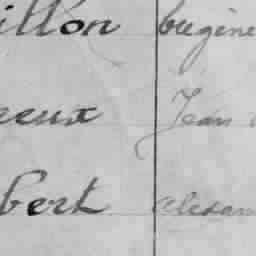 illon Eugène
reux Jean
bert alexan